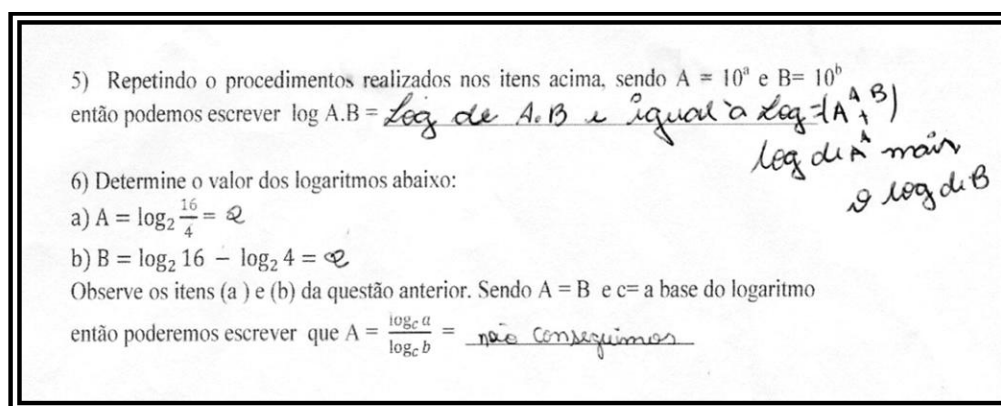 5) Repetindo o procedimentos realizados nos itens acima, sendo A = 10ᵃ e B= 10ᵇ
então podemos escrever log A.B = Log de A.B e igual à Log (A + B)
log de A mais
o log de B
6) Determine o valor dos logaritmos abaixo:
a) A = log₂ 16/4 = 2
b) B = log₂ 16 − log₂ 4 = 2
Observe os itens (a ) e (b) da questão anterior. Sendo A = B e c= a base do logaritmo
então poderemos escrever que A = log_c a / log_c b = não conseguimos